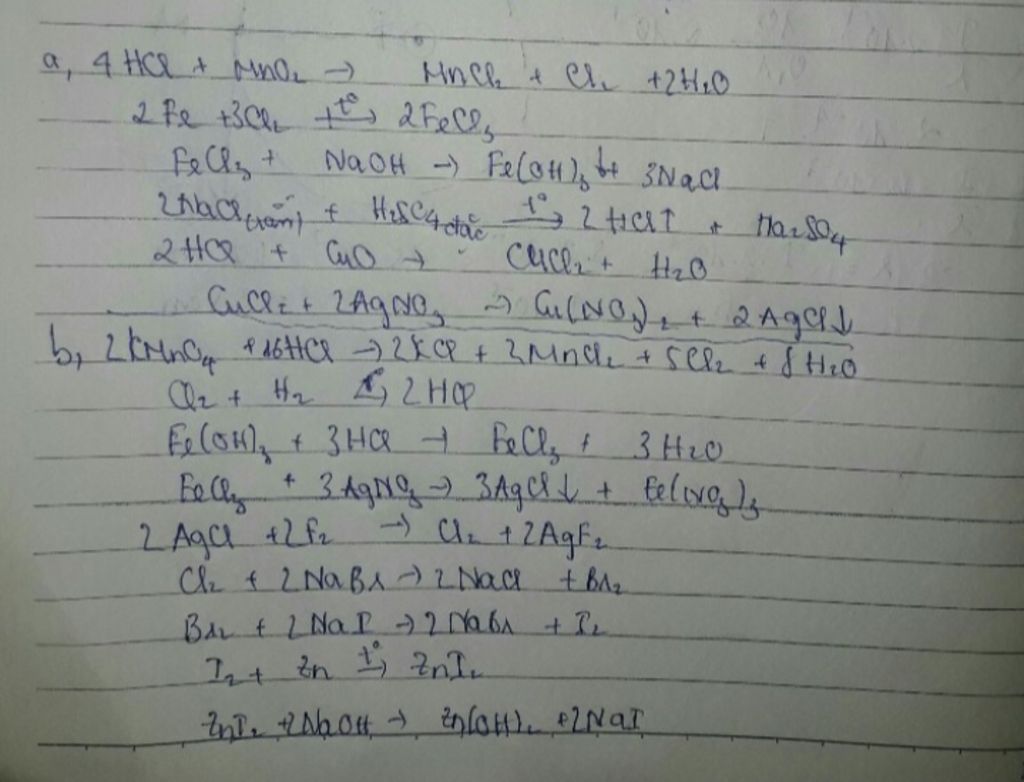 a, 4 HCl + MnO₂ → MnCl₂ + Cl₂ + 2H₂O
2 Fe + 3Cl₂ t°→ 2FeCl₃
FeCl₃ + NaOH → Fe(OH)₃ ↓ + 3NaCl
2NaCl + H₂SO₄ đặc t°→ 2 HCl ↑ + Na₂SO₄
2 HCl + CuO → CuCl₂ + H₂O
CuCl₂ + 2AgNO₃ → Cu(NO₃)₂ + 2 AgCl ↓
b, 2 KMnO₄ + 16HCl → 2KCl + 2MnCl₂ + 5Cl₂ + 8 H₂O
Cl₂ + H₂ → 2 HCl
Fe(OH)₃ + 3 HCl → FeCl₃ + 3 H₂O
FeCl₃ + 3 AgNO₃ → 3AgCl ↓ + Fe(NO₃)₃
2 AgCl + 2F₂ → Cl₂ + 2AgF₂
Cl₂ + 2 NaBr → 2 NaCl + Br₂
Br₂ + 2 NaI → 2 NaBr + I₂
I₂ + Zn t°→ ZnI₂
ZnI₂ + 2NaOH → Zn(OH)₂ + 2NaI